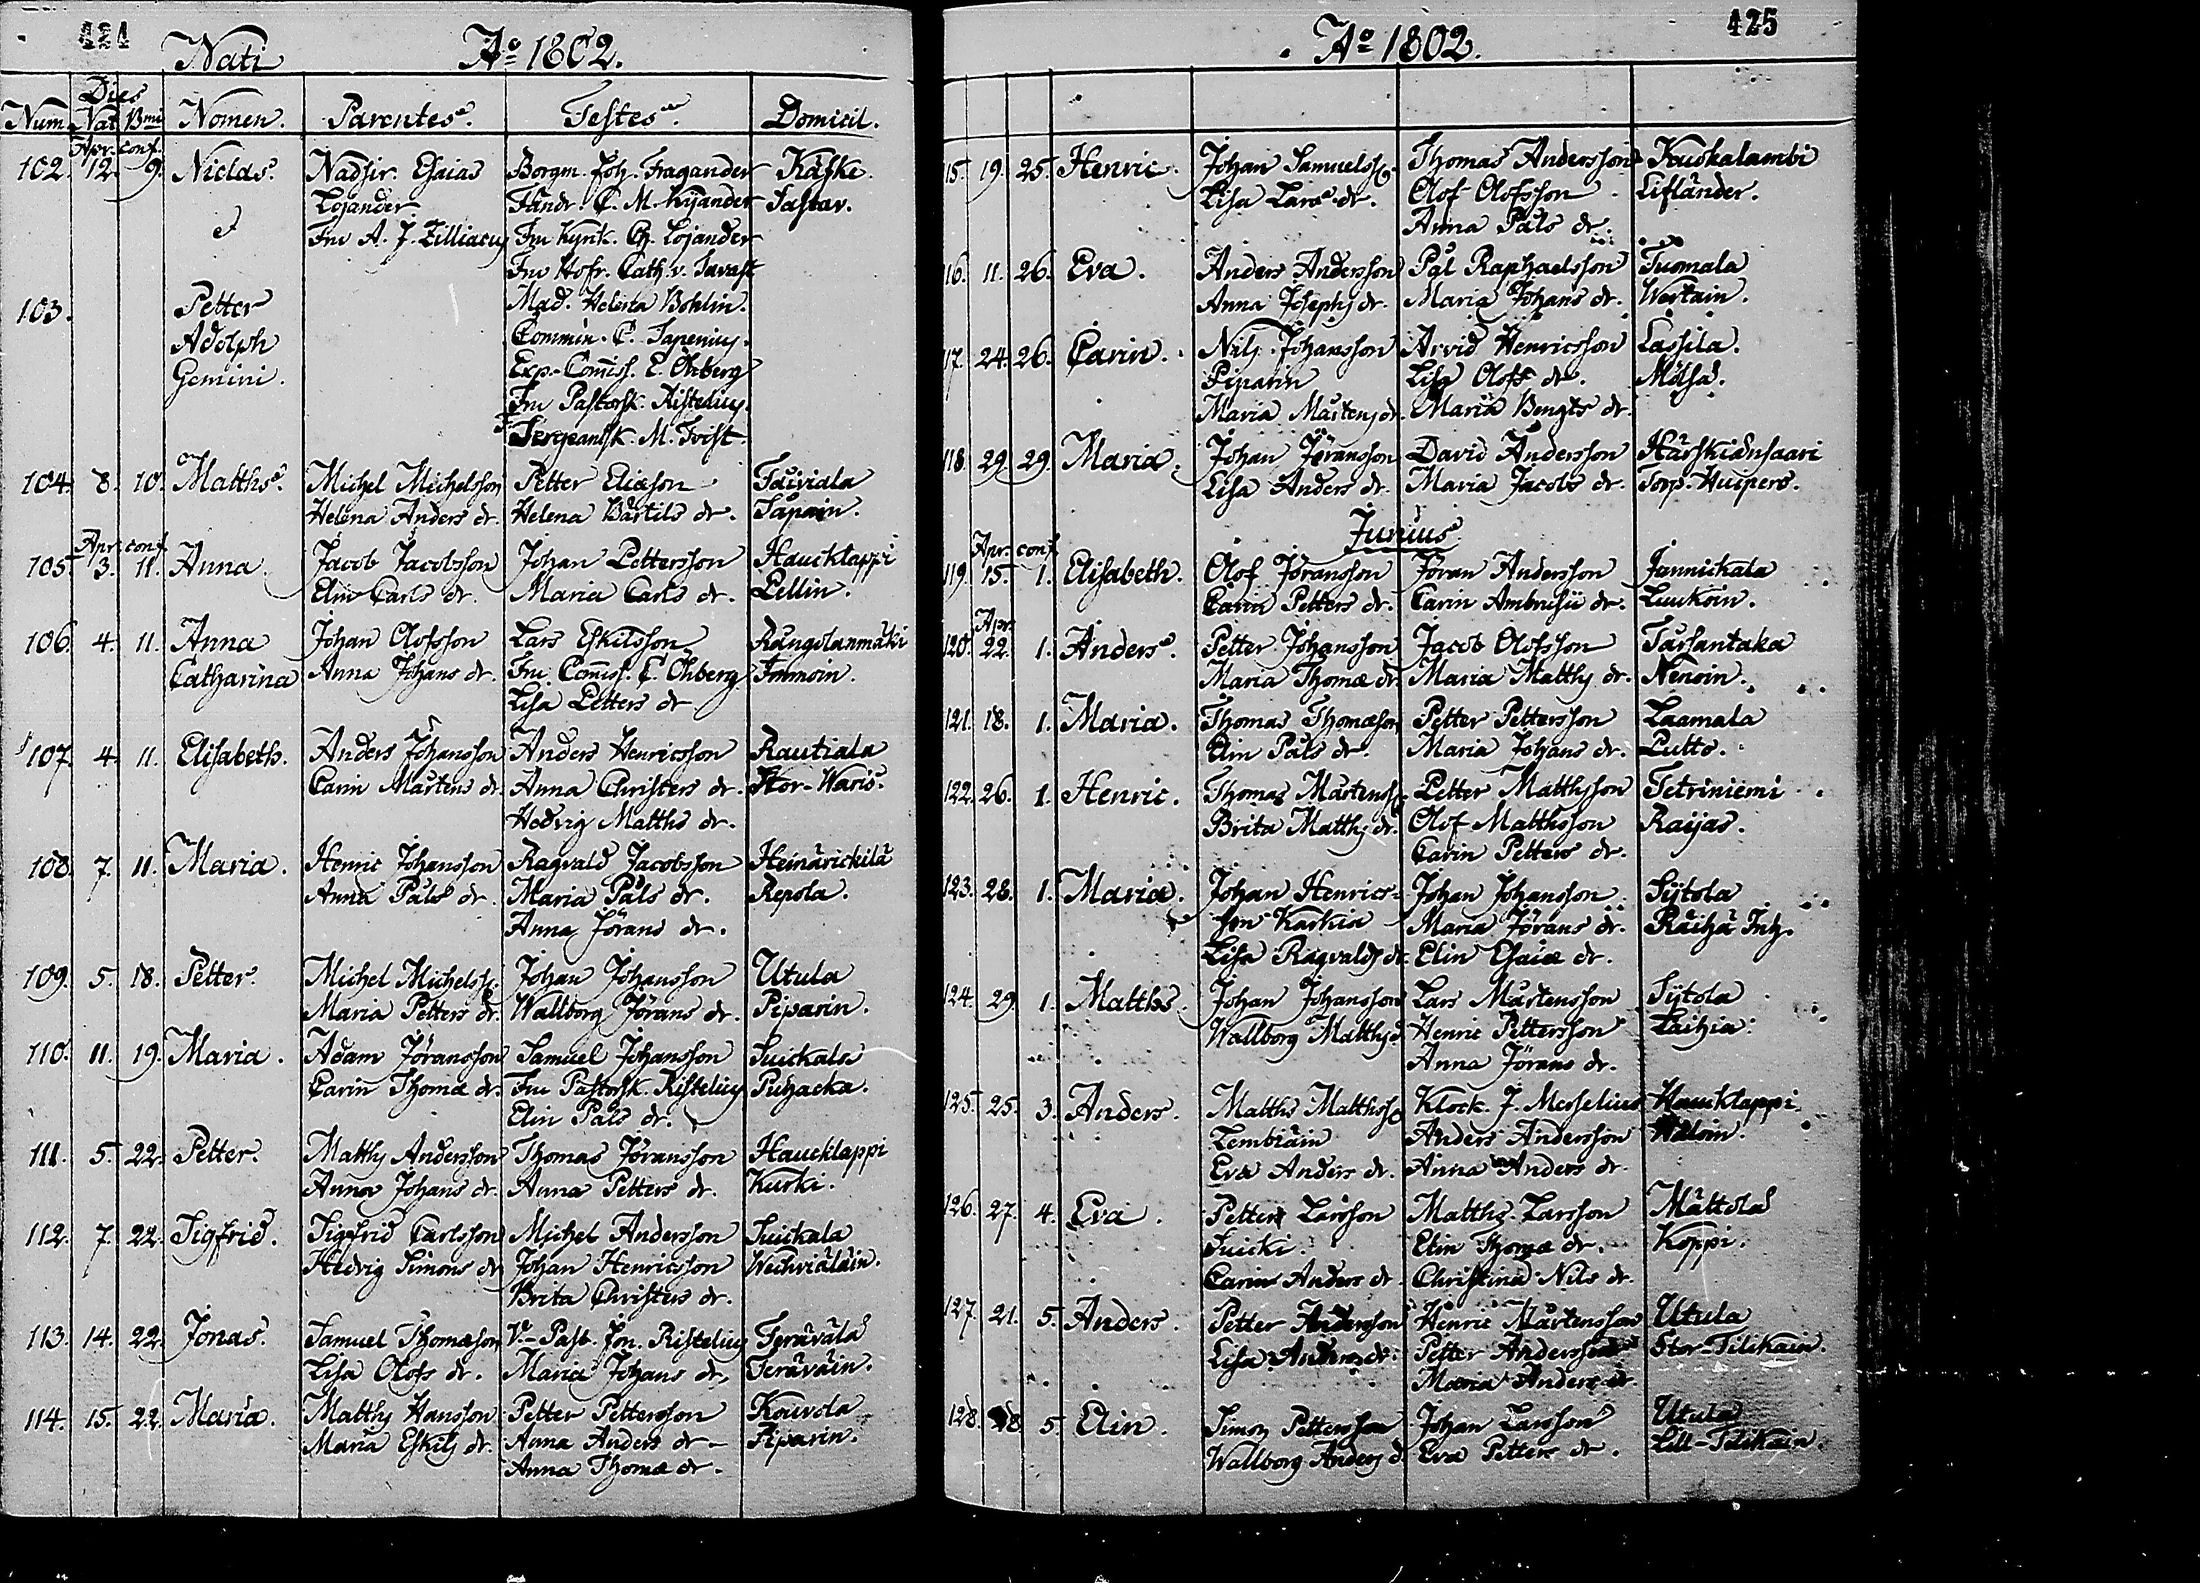 424
Nati Ao 1802.
Dies
Num. Nat. Bmi Nomen. Parentes. Testes. Domicil.
Apr. conf.
102. 12. 9. Niclas. Esaias Borgm. Joh. Fragander Käske.
Lojander Fändr. C. M. Kyander Tastav.
& Fru A. J. Zilliacus Fru Kyrk. Lojander
Fru Hofr. Cath. v. Tavast
103. Petter Mad. Helena Bohlin.
Adolph Commin. C. Tapenius.
Gemini. Exp.-Commiss. E. Ohberg
Fru Pastorsk. Ristelius.
Sergeantsk. M. Tvist.
104. 8. 10. Matths. Michel Michelsson Petter Eliason
Helena Anders dr. Helena Bärtils dr. Tapain.
Apr. conf.
105. 3. 11. Anna Jacob Jacobsson Johan Pettersson Haucklappi
Elin Carls dr. Maria Carls dr. Pellin.
106. 4. 11. Anna Johan Olofsson Lars Eskilsson Rångolanmäki
Catharina Anna Johans dr. Fru Commiss. C. Ohberg
Lisa Petters dr
107. 4. 11. Elisabeth. Anders Johansson Anders Henricsson Rautiala
Carin Mårtens dr. Anna Christers dr. Stor-Waris.
Hedvig Matths dr.
108. 7. 11. Maria. Henric Johansson Ragvald Jacobsson Heinärickilä
Anna Påls dr. Maria Påls dr. Repola.
Anna Jörans dr.
109. 5. 18. Petter. Michel Michelss. Johan Johansson Utula
Maria Petters dr. Wallborg Jörans dr. Piparin.
110. 11. 19. Maria. Adam Jöransson Samuel Johansson Suickala
Carin Thomæ dr. Fru Pastorsk. Ristelius Puhacka.
Elin Påls dr.
111. 5. 22. Petter. Matths Andersson Thomas Jöransson Haucklappi
Anna Johans dr. Anna Petters dr. Kurki.
112. 7. 22. Sigfrid. Sigfrid Carlsson Michel Andersson Suickala
Hedvig Simons dr Johan Henricsson Wechviäläin.
Brita Christers dr.
113. 14. 22. Jonas. Samuel Thomæson V.-Past. Jon. Ristelius Teräválä
Lisa Olofs dr. Maria Johans dr. Teräväin.
114. 15. 22. Maria. Matths Hansson Petter Pettersson Kouvola
Maria Eskils dr. Anna Anders dr- Piparin.
Anna Thomæ dr.
425
Ao 1802.
15. 19. 25. Henric. Johan Samuelss. Thomas Andersson Kuoskalambi
Lisa Lars dr. Olof Olofsson Lifländer.
Anna Påls dr.
16. 11. 26. Eva. Anders Andersson Pål Raphaelsson Tuomala
Anna Josephs dr. Maria Johans dr. Wertain.
17. 24. 26. Carin. Nils Johansson Arvid Henricsson Lassila.
Piparin Lisa Olofs dr. Mölsä.
Maria Mårtens dr. Maria Bengts dr.
118. 29. 29. Maria. Johan Jöransson David Andersson Härskiänsaari
Lisa Anders dr. Maria Jacobs dr. Torp. Huipero.
Junius
Apr. conf
119. 15. 1. Elisabeth. Olof Jöransson Jöran Andersson Jannickala
Carin Petters dr. Carin Ambrusii dr. Luukoin.
Apr.
120. 22. 1. Anders. Petter Johansson Jacob Olofsson Tarsantaka
Maria Thomæ dr Maria Matths dr. Nenoin.
121. 18. 1. Maria. Thomas Thomæson Petter Pettersson Laamala
Elin Påls dr. Maria Johans dr. Putto.
122. 26. 1. Henric. Thomas Mårtenss. Petter Matthsson Tetriniemi
Brita Matths dr. Olof Matthsson Raijas.
Carin Petters dr.
123. 28. 1. Maria. Johan Henrics= Johan Johansson Sytola
son Karhia Maria Jörans dr. Räihä Inh.
Lisa Ragvalds dr. Elin Esaiæ dr.
124. 29. 1. Matths. Johan Johansson Lars Mårtensson Sytola
Wallborg Matths d. Henric Pettersson Laihia.
Anna Jörans dr.
125. 25. 3. Anders. Matths Matthss. Klock. J. Messelius Haucklappi
Lembiäin Anders Andersson
Eva Anders dr. Anna Anders dr.
126. 27. 4. Eva. Petter Larsson Matths Larsson Mättölä
Suicki. Elin Thomæ dr. Koppi.
Carin Anders dr. Christina Nils dr.
127. 21. 5. Anders. Petter Andersson Henric Mårtensson Utula
Lisa Anders dr. Petter Andersson Stor-Tilikain.
Maria Anders dr.
128. 5. Elin. Simon Pettersson Johan Larsson Utula
Wallborg Anders d. Eva Petters dr. Lill-Tilikain.